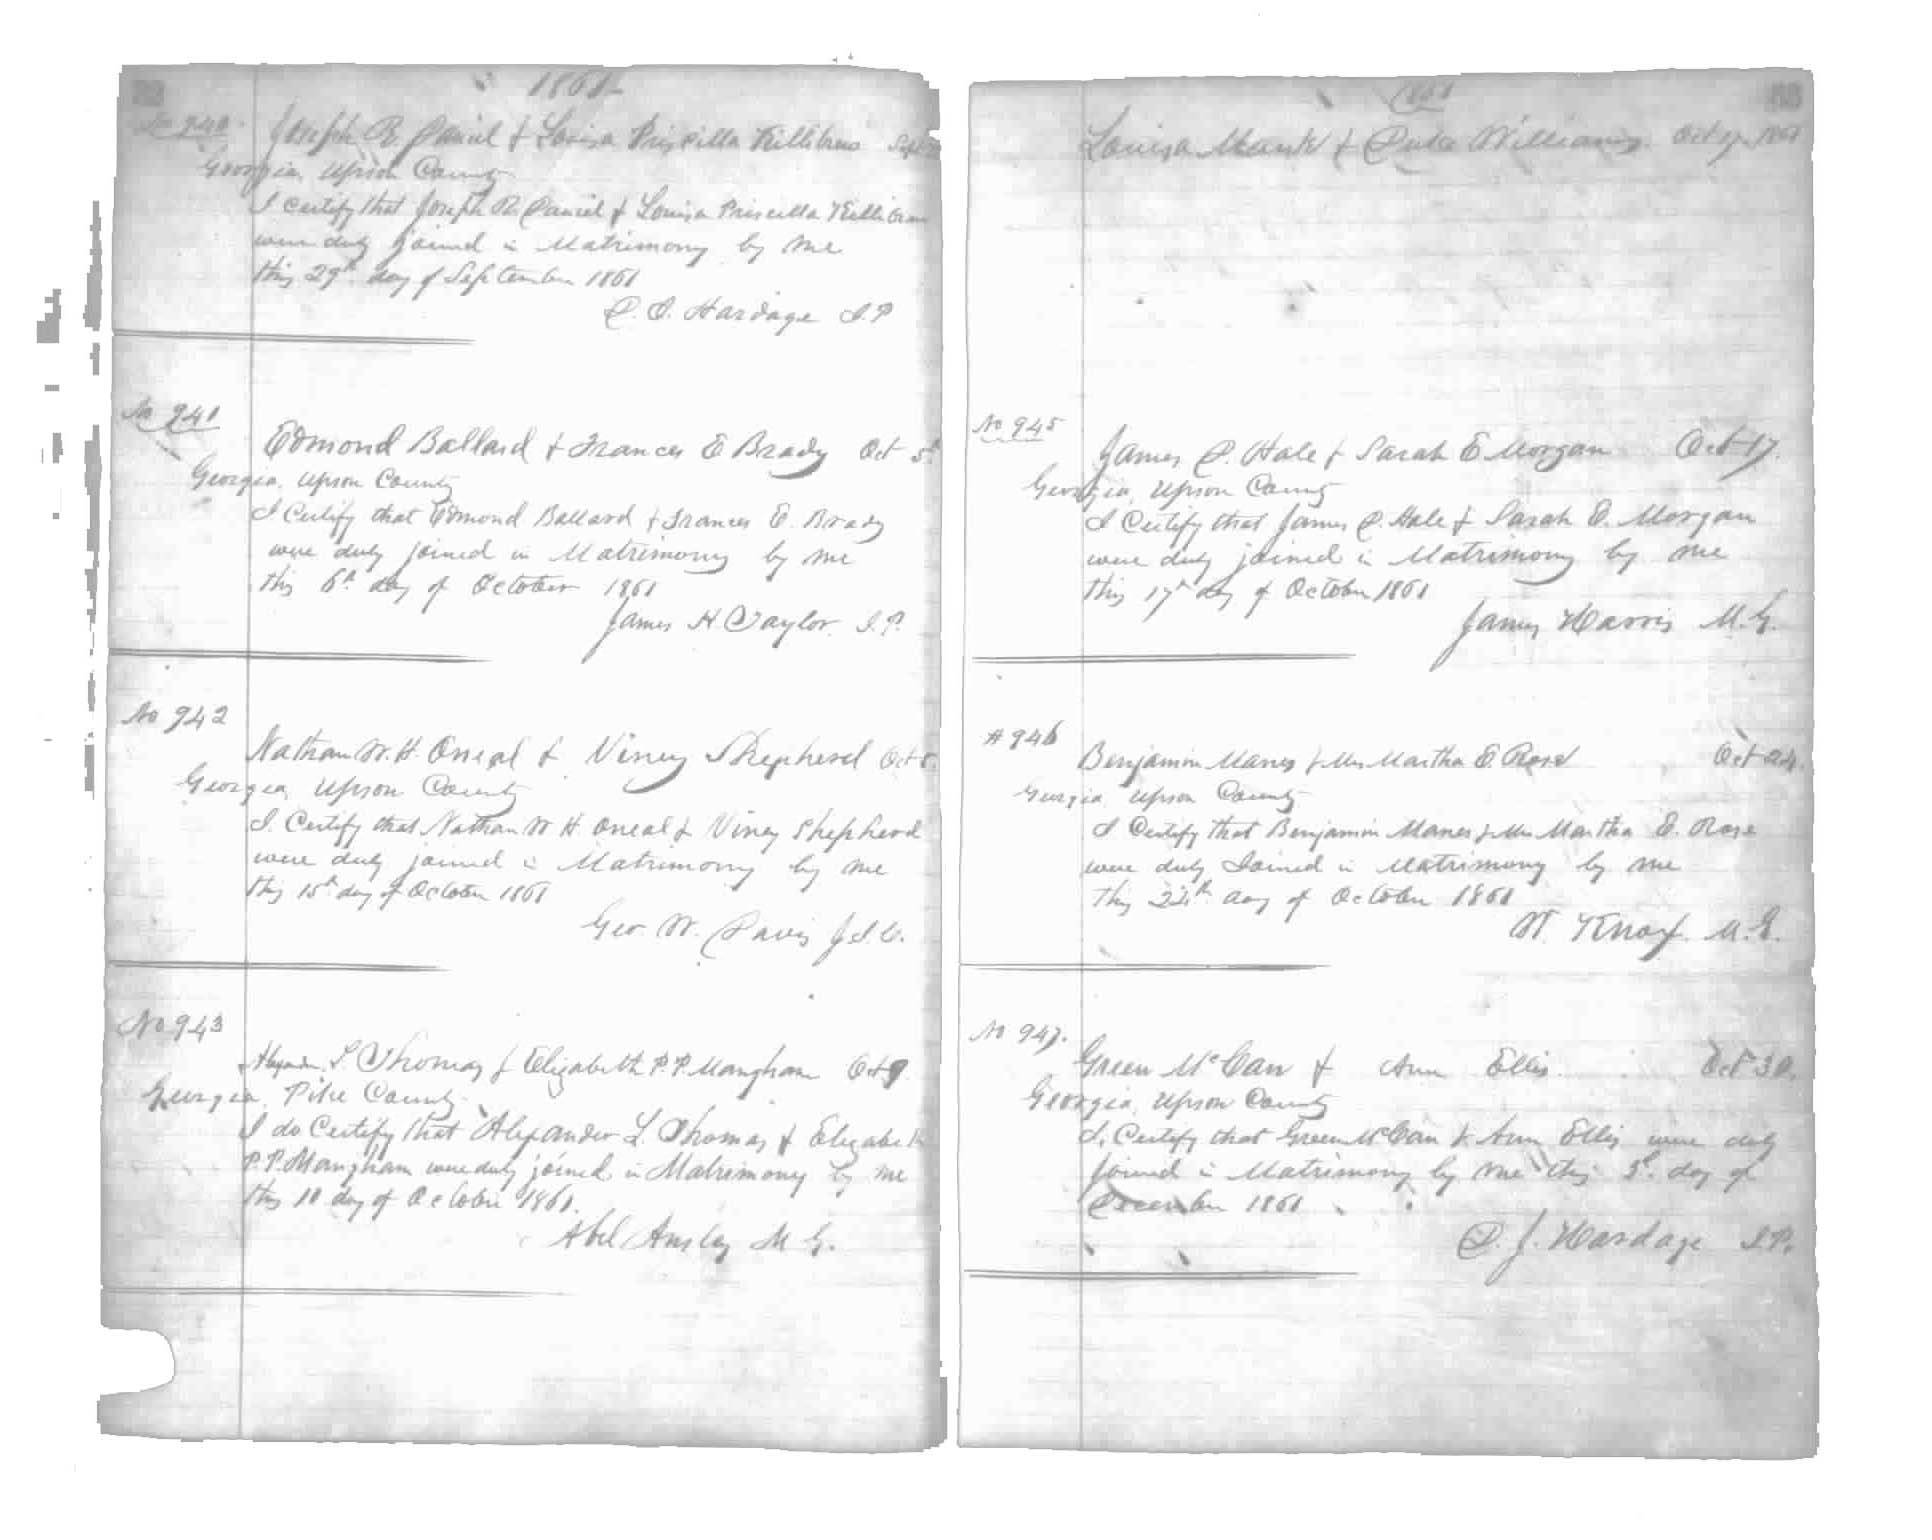 1861
No 940
Joseph R. Daniel & Louisa Priscilla Killibrew Sept
Georgia, Upson County
I certify that Joseph R. Daniel & Louisa Priscilla Killibrew
were duly joined in Matrimony by me
this 29th day of September 1861
Hardage J.P
No 941
Edmond Ballard & Frances E Brady Oct 5th
Georgia, Upson County
I Certify that Edmond Ballard & Frances E. Brady
were duly joined in Matrimony by me
this 6th day of October 1861
James H Taylor J.P.
No 942
Nathan W. H. Oneal & Viney Shepherd Oct
Georgia, Upson County
I Certify that Nathan W H Oneal & Viney Shepherd
were duly joined in Matrimony by me
this 15th day of October 1861
Geo. W. Davis J.I.C.
No 943
Alexander L Thomas & Elizabeth P. P. Mangham Oct 9
Georgia, Pike County
I do Certify that Alexander L. Thomas & Elizabeth
P. P. Mangham were duly joined in Matrimony by me
this 10 day of October 1861.
Abel Ansley M G.
1861
Louisa & Williams Oct 17 1861
No 945
James D. Hale & Sarah E Morgan Oct 17.
Georgia, Upson County
I Certify that James D. Hale & Sarah E. Morgan
were duly joined in Matrimony by me
this 17th day of October 1861
James Harris M.G.
# 946
Benjamin Manes & Mrs Martha E. Rose Oct 24.
Georgia Upson County
I Certify that Benjamin Manes & Mrs Martha E. Rose
were duly Joined in Matrimony by me
this 24th day of October 1861
W. Knox. M.G.
No 947.
Green McCan & Ann Ellis Oct 30.
Georgia, Upson County
I, Certify that Green McCan & Ann Ellis were duly
joined in Matrimony by me this 3d day of
December 1861
Hardage J.P.